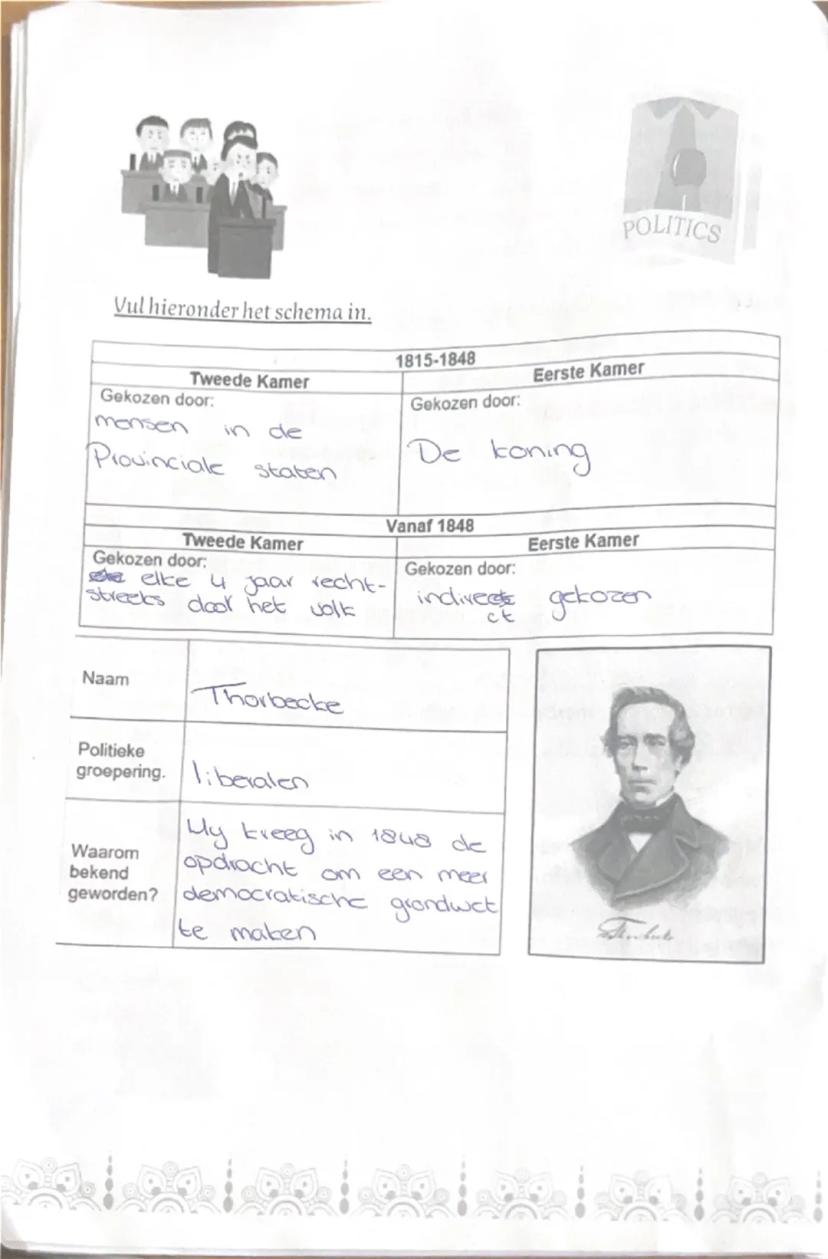 POLITICS
Vul hieronder het schema in.
1815-1848
Tweede Kamer
Eerste Kamer
Gekozen door:
mensen in de
Provinciale staten
Gekozen door:
De koning
Vanaf 1848
Tweede Kamer
Eerste Kamer
Gekozen door:
elke 4 jaar recht-
streeks door het volk
Gekozen door:
indirect gekozen
Naam
Thorbecke
Politieke
groepering.
liberalen
Waarom
bekend
geworden?
Hij kreeg in 1848 de
opdracht om een meer
democratische grondwet
te maken